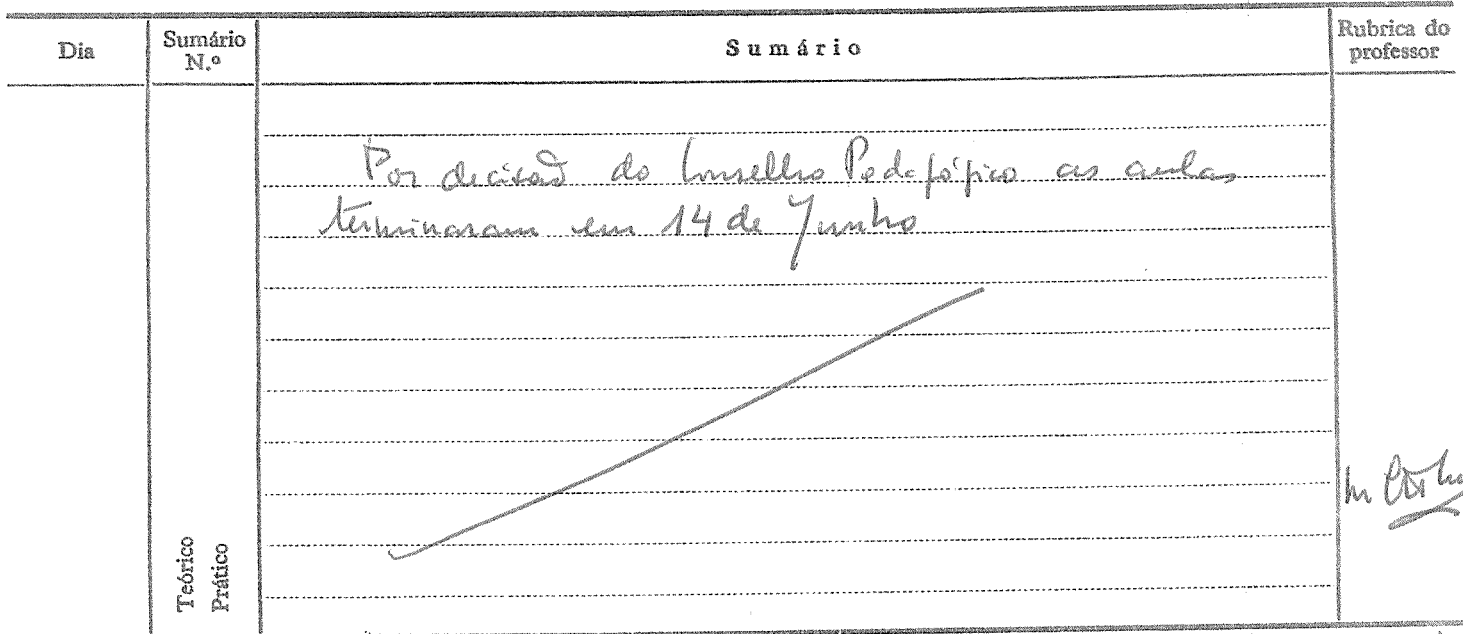 Dia
Sumário N.º
Sumário
Rubrica do professor
Por decisão do Conselho Pedagógico as aulas
terminaram em 14 de Junho
Teórico
Prático